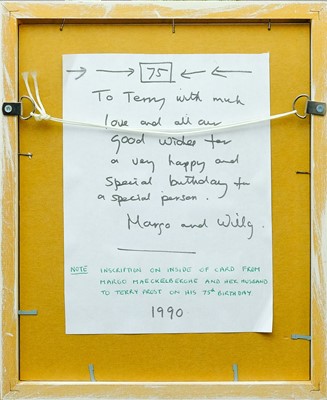 → → 75 ← ←
To Terry with much
love and all our
good wishes for
a very happy and
special birthday for
a special person.
Margo and Willy.
NOTE INSCRIPTION ON INSIDE OF CARD FROM
MARGO MAECKELBERGHE AND HER HUSBAND
TO TERRY FROST ON HIS 75th BIRTHDAY
1990